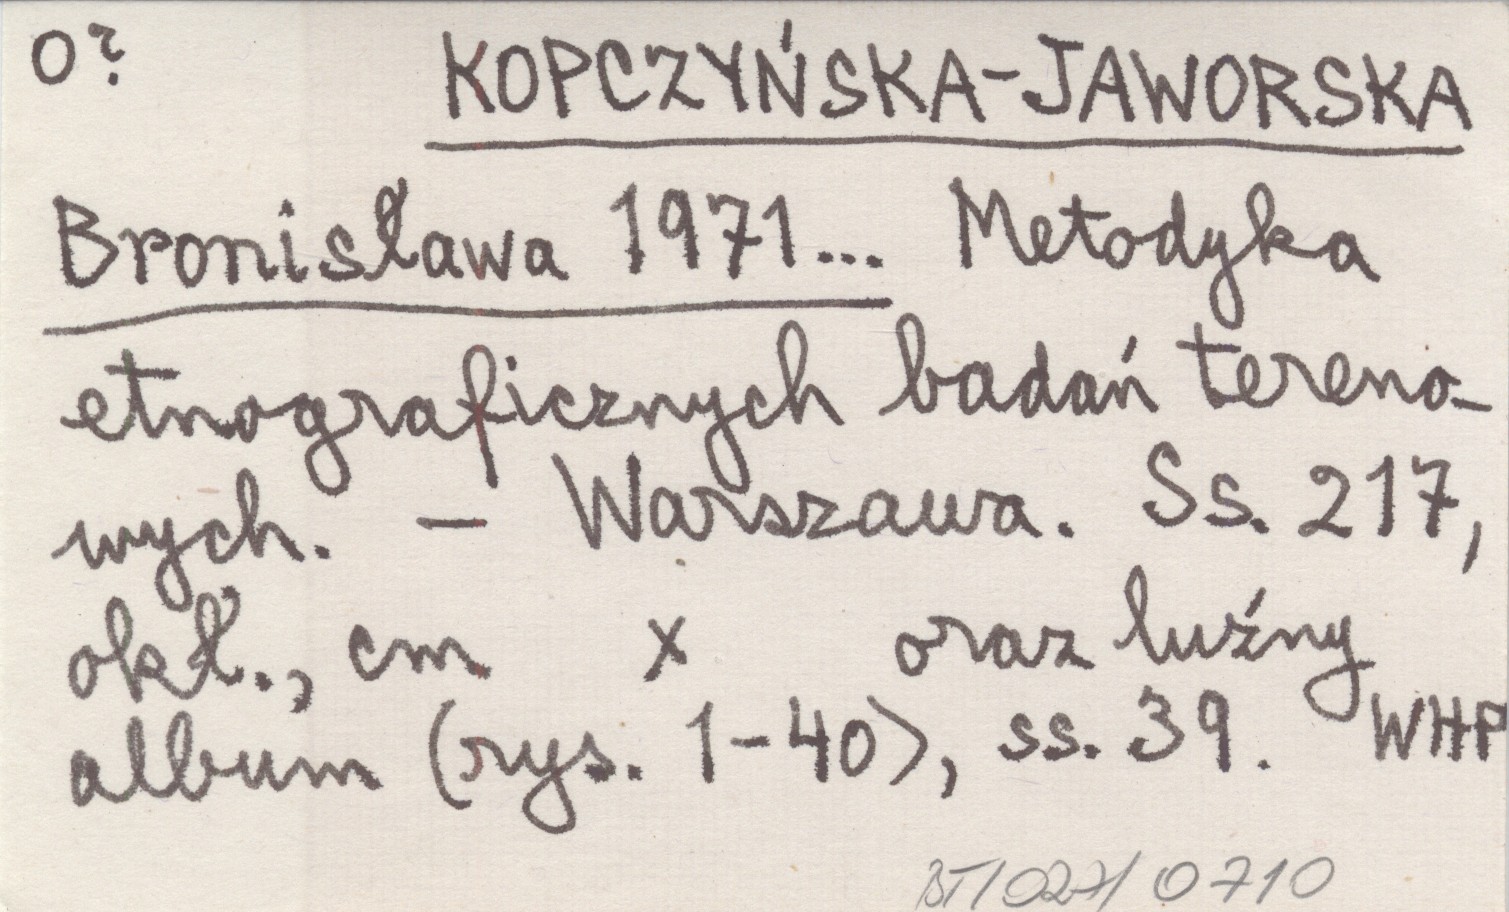 O?
KOPCZYŃSKA-JAWORSKA
Bronisława 1971... Metodyka
etnograficznych badań tereno-
wych. - Warszawa. Ss. 217,
okł., cm x oraz luźny
album (rys. 1-40), ss. 39. WHP
BT/027/0710